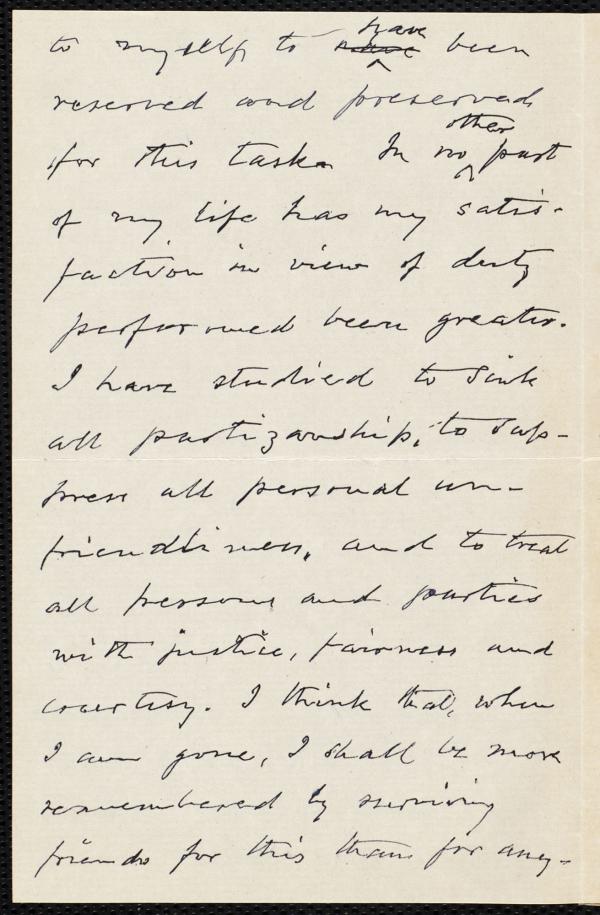 to myself to have been
reserved and preserved
for this task. In no other part
of my life has my satis-
faction in view of duty
performed been greater.
I have studied to sink
all partizanship, to sup-
press all personal un-
friendliness, and to treat
all persons and parties
with justice, fairness and
courtesy. I think that, when
I am gone, I shall be more
remembered by surviving
friends for this than for any-